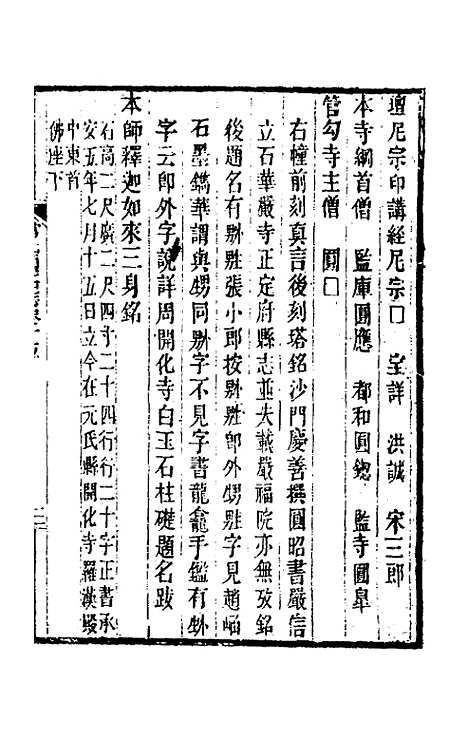 壇尼宗印講經尼宗□　宝詳　洪誠　宋三郎
本寺綱首僧　監庫圓應　都和圓鎴　監寺圓臯
管勾寺主僧　圓□
右幢前刻真言後刻塔銘沙門慶善撰圓昭書嚴信
立石華嚴寺正定府縣志並失載嚴福院亦無攷銘
後題名有㽒甡張小郎按㽒甡卽外甥甡字見趙崡
石墨鐫華謂與甥同㽒字不見字書龍龕手鑑有㽒
字云卽外字說詳周開化寺白玉石柱礎題名跋
本師釋迦如來三身銘
石高二尺廣二尺四寸二十四行行二十字正書承
安五年七月十五日立今在元氏縣開化寺羅漢殿
中東首
佛座下